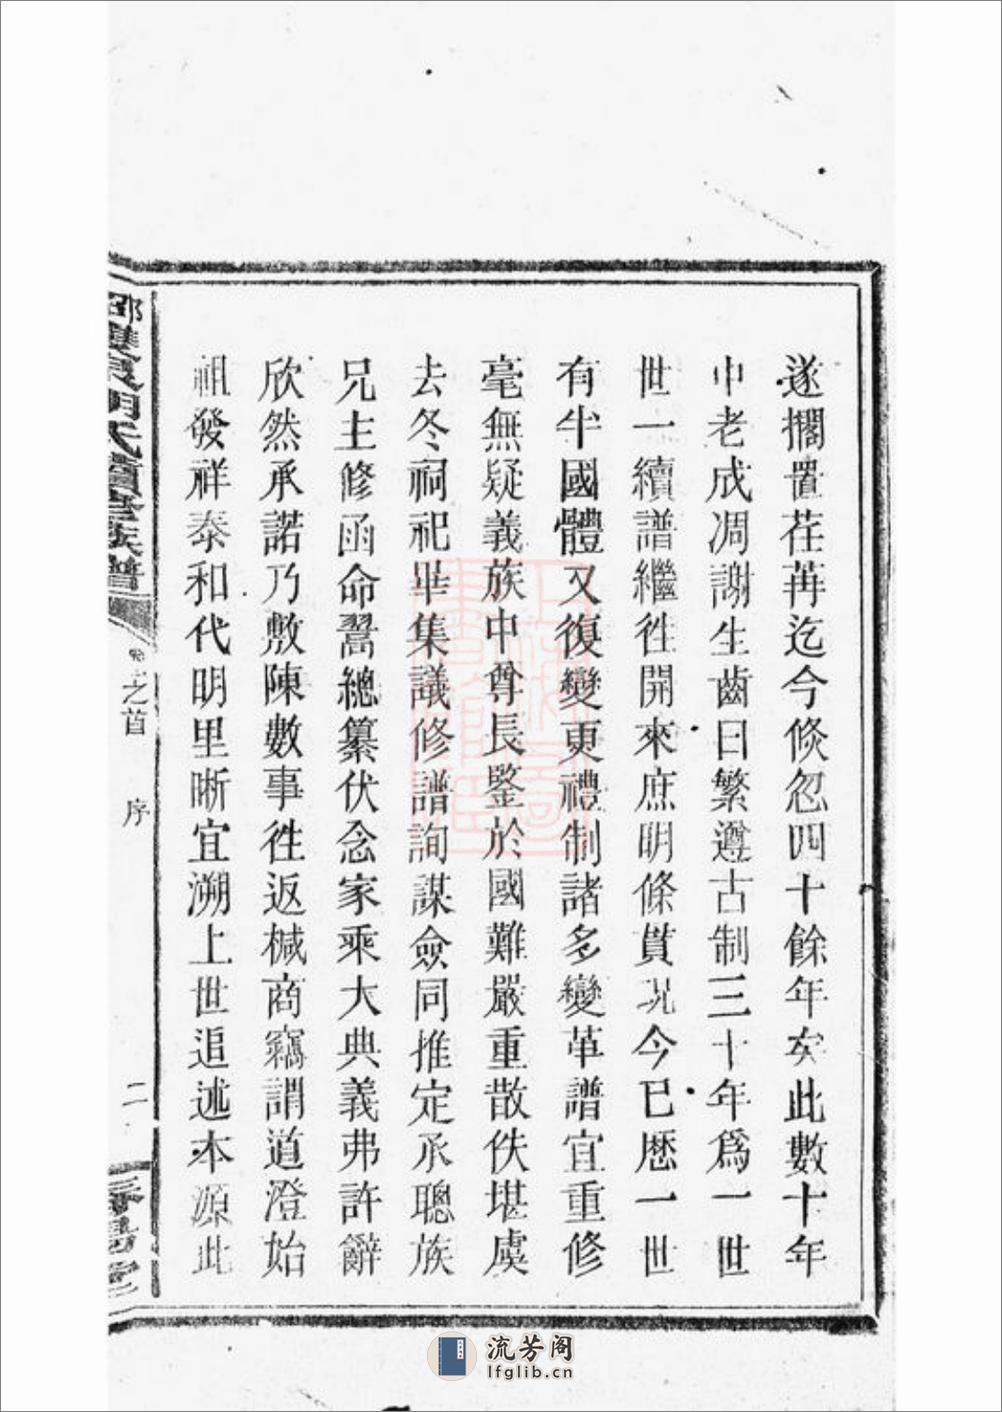 遂擱置荏苒迄今倏忽四十餘年矣此數十年
中老成凋謝生齒日繁遵古制三十年爲一世
世一續譜繼徃開來庶明條貫况今已歷一世
有半國體又復變更禮制諸多變革譜宜重修
毫無疑義族中尊長鑒於國難嚴重散佚堪虞
去冬祠祀畢集議修譜詢謀僉同推定承聰族
兄主修函命爲總纂伏念家乘大典義弗許辭
欣然承諾乃敷陳數事徃返椷商竊謂道澄始
祖發祥泰和代明里晰宜溯上世追述本源此
氏續修族譜
卷之首
序
二
流芳阁
lfglib.cn